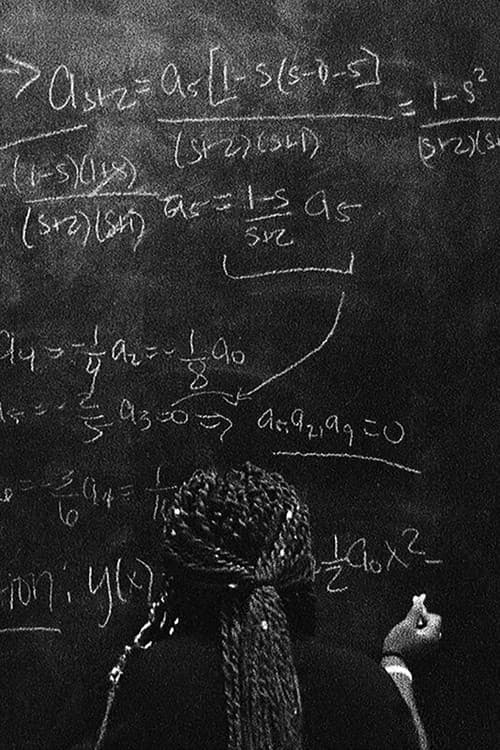 → a_{s+2} = a_s[1-s(s-1)-s] / (s+2)(s+1) = 1-s² / (s+2)(s
(1-s)(1+s) / (s+2)(s+1) a_s = 1-s / s+2 a_s
a_4 = -1/4 a_2 = -1/8 a_0
a_5 = -2/5 a_3 = 0 ⇒ a_5, a_7, a_9 = 0
-3/6 a_4 = 1/1
tion: y(x)
1/2 a_0 x² -